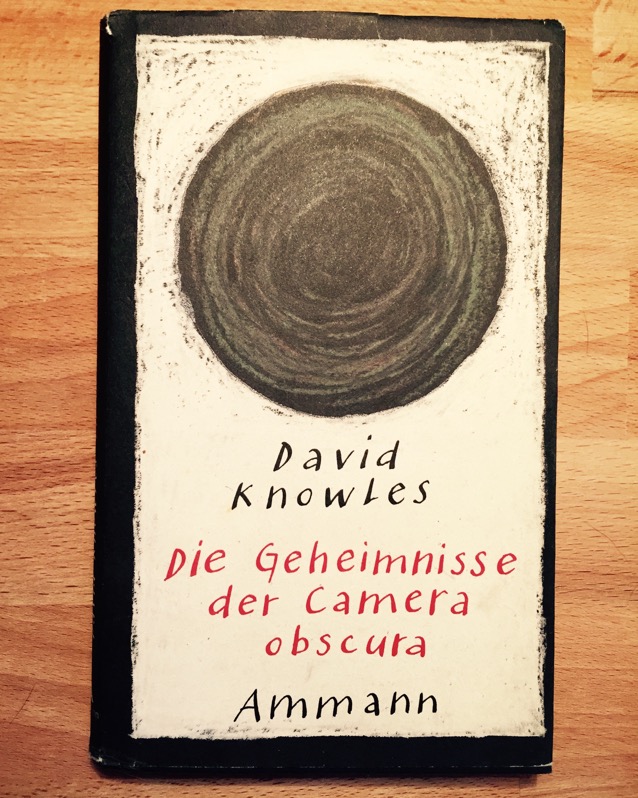 David
Knowles
Die Geheimnisse
der Camera
obscura
Ammann